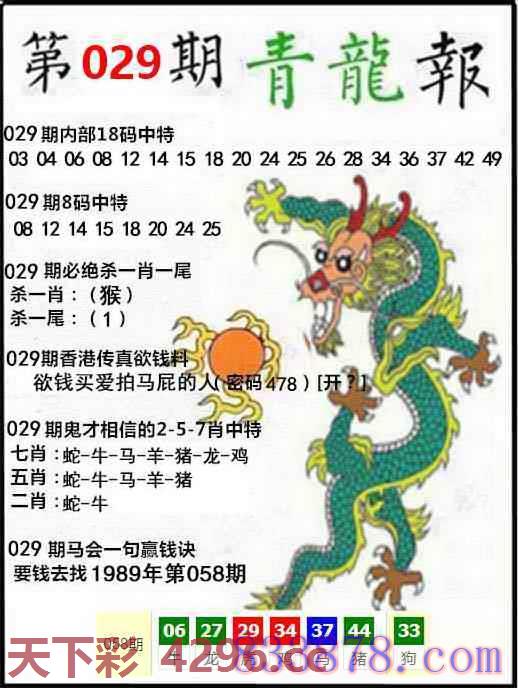 第029期青龍報
029期内部18码中特
03 04 06 08 12 14 15 18 20 24 25 26 28 34 36 37 42 49
029期8码中特
08 12 14 15 18 20 24 25
029 期必绝杀一肖一尾
杀一肖：（猴）
杀一尾：（1）
029期香港传真欲钱料
欲钱买爱拍马屁的人(密码478)[开？]
029期鬼才相信的2-5-7肖中特
七肖：蛇-牛-马-羊-猪-龙-鸡
五肖：蛇-牛-马-羊-猪
二肖：蛇-牛
029 期马会一句赢钱诀
要钱去找1989年第058期
058期 06 27 29 34 37 44 33
牛 龙 虎 鸡 马 猪 狗
天下彩 4296.cc
838878.com